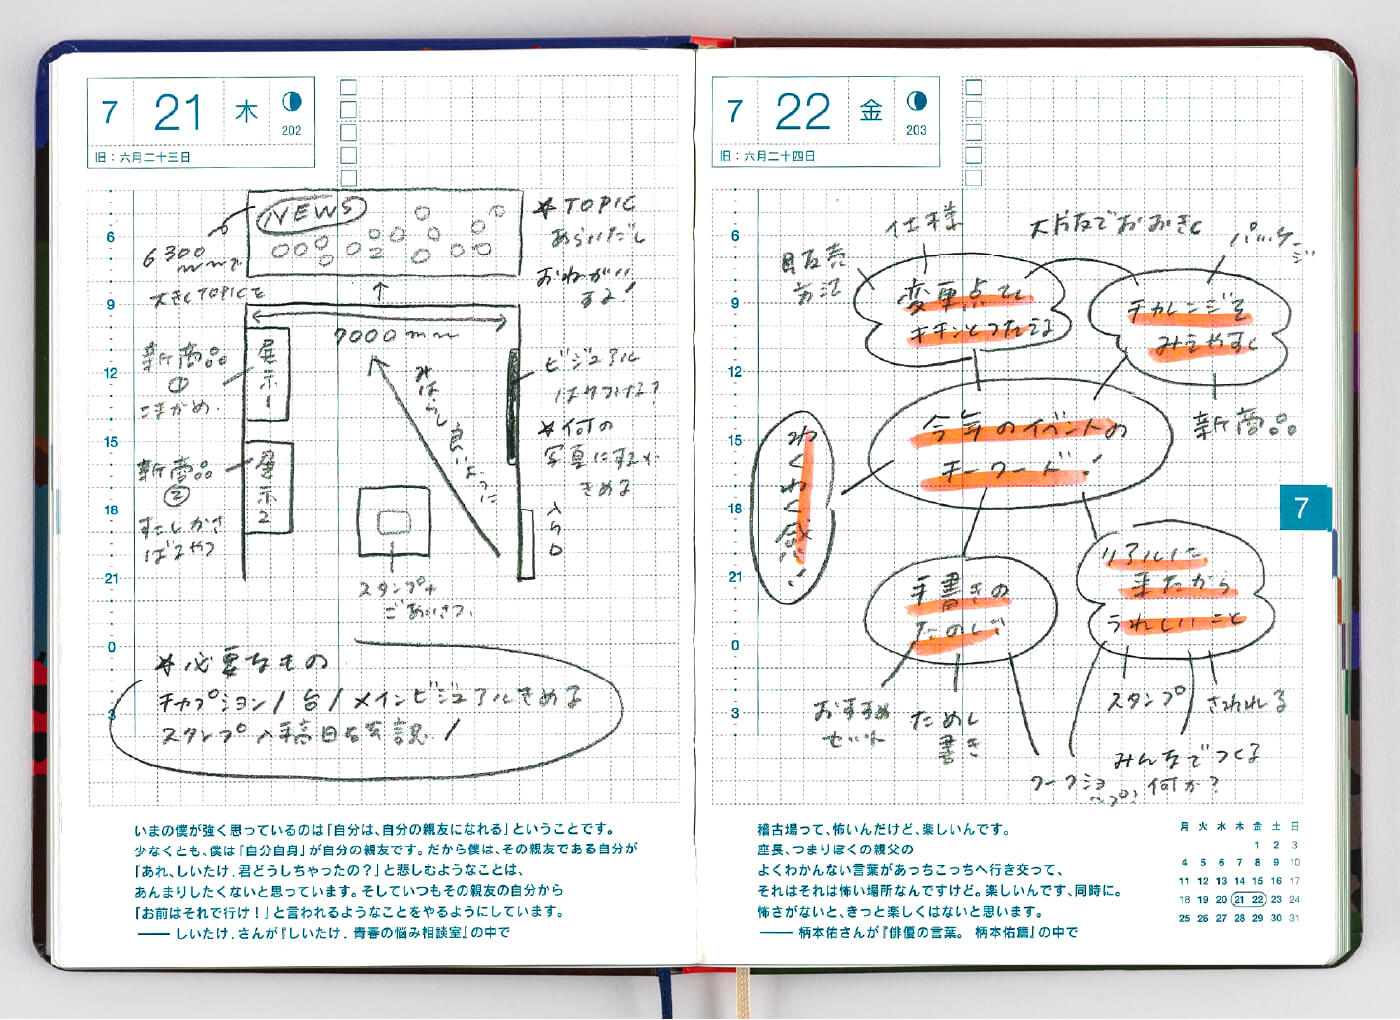 7 21 木
202
旧：六月二十三日
6
9
12
15
18
21
0
3
NEWS
6300
mmで
大きくTOPICを
★TOPIC
あらいだし
おねがい
する！
7000mm
新商品
①
こまかめ.
展示1
新商品
②
すこしかさ
ばるやつ
展示2
みはらし良いように
ビジュアル
はりつける？
★何の
写真にするか
きめる
入口
スタンプ+
ごあいさつ.
★必要なもの
キャプション/台/メインビジュアルきめる
スタンプ入稿日も確認！
いまの僕が強く思っているのは「自分は、自分の親友になれる」ということです。
少なくとも、僕は「自分自身」が自分の親友です。だから僕は、その親友である自分が
「あれ、しいたけ.君どうしちゃったの？」と悲しむようなことは、
あんまりしたくないと思っています。そしていつもその親友の自分から
「お前はそれで行け！」と言われるようなことをやるようにしています。
――しいたけ.さんが『しいたけ.青春の悩み相談室』の中で
7 22 金
203
旧：六月二十四日
6
9
12
15
18
21
0
3
仕様
販売
方法
パッケージ
変更点を
キチンとつたえる
チャレンジを
みえやすく
新商品
今年のイベントの
キーワード！
わくわく感！
手書きの
たのしさ
リアルに
来たから
うれしいこと
おすすめ
セット
ためし
書き
スタンプ
さわれる
ワークショップ？
みんなでつくる
何か？
7
稽古場って、怖いんだけど、楽しいんです。
座長、つまりぼくの親父の
よくわかんない言葉があっちこっちへ行き交って、
それはそれは怖い場所なんですけど。楽しいんです、同時に。
怖さがないと、きっと楽しくはないと思います。
――柄本佑さんが『俳優の言葉。 柄本佑篇』の中で
月 火 水 木 金 土 日
1 2 3
4 5 6 7 8 9 10
11 12 13 14 15 16 17
18 19 20 21 22 23 24
25 26 27 28 29 30 31